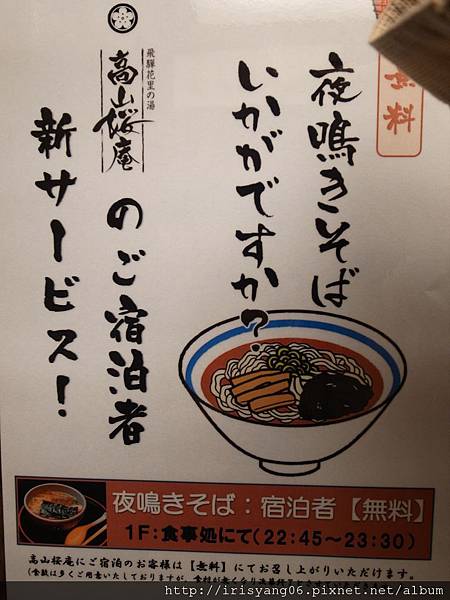 無料
夜鳴きそば
いかがですか?
飛騨花里の湯
高山桜庵
のご宿泊者
新サービス!
夜鳴きそば：宿泊者【無料】
1F:食事処にて(22:45～23:30)
高山桜庵にご宿泊のお客様は【無料】にてお召し上がりいただけます。
http://irisyang06.pixnet.net/album